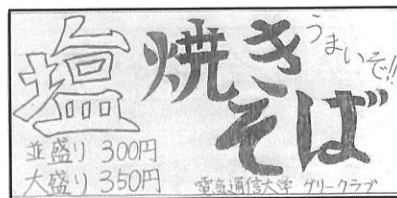 塩焼きそば
うまいぞ!!
並盛り 300円
大盛り 350円
電気通信大学 グリークラブ